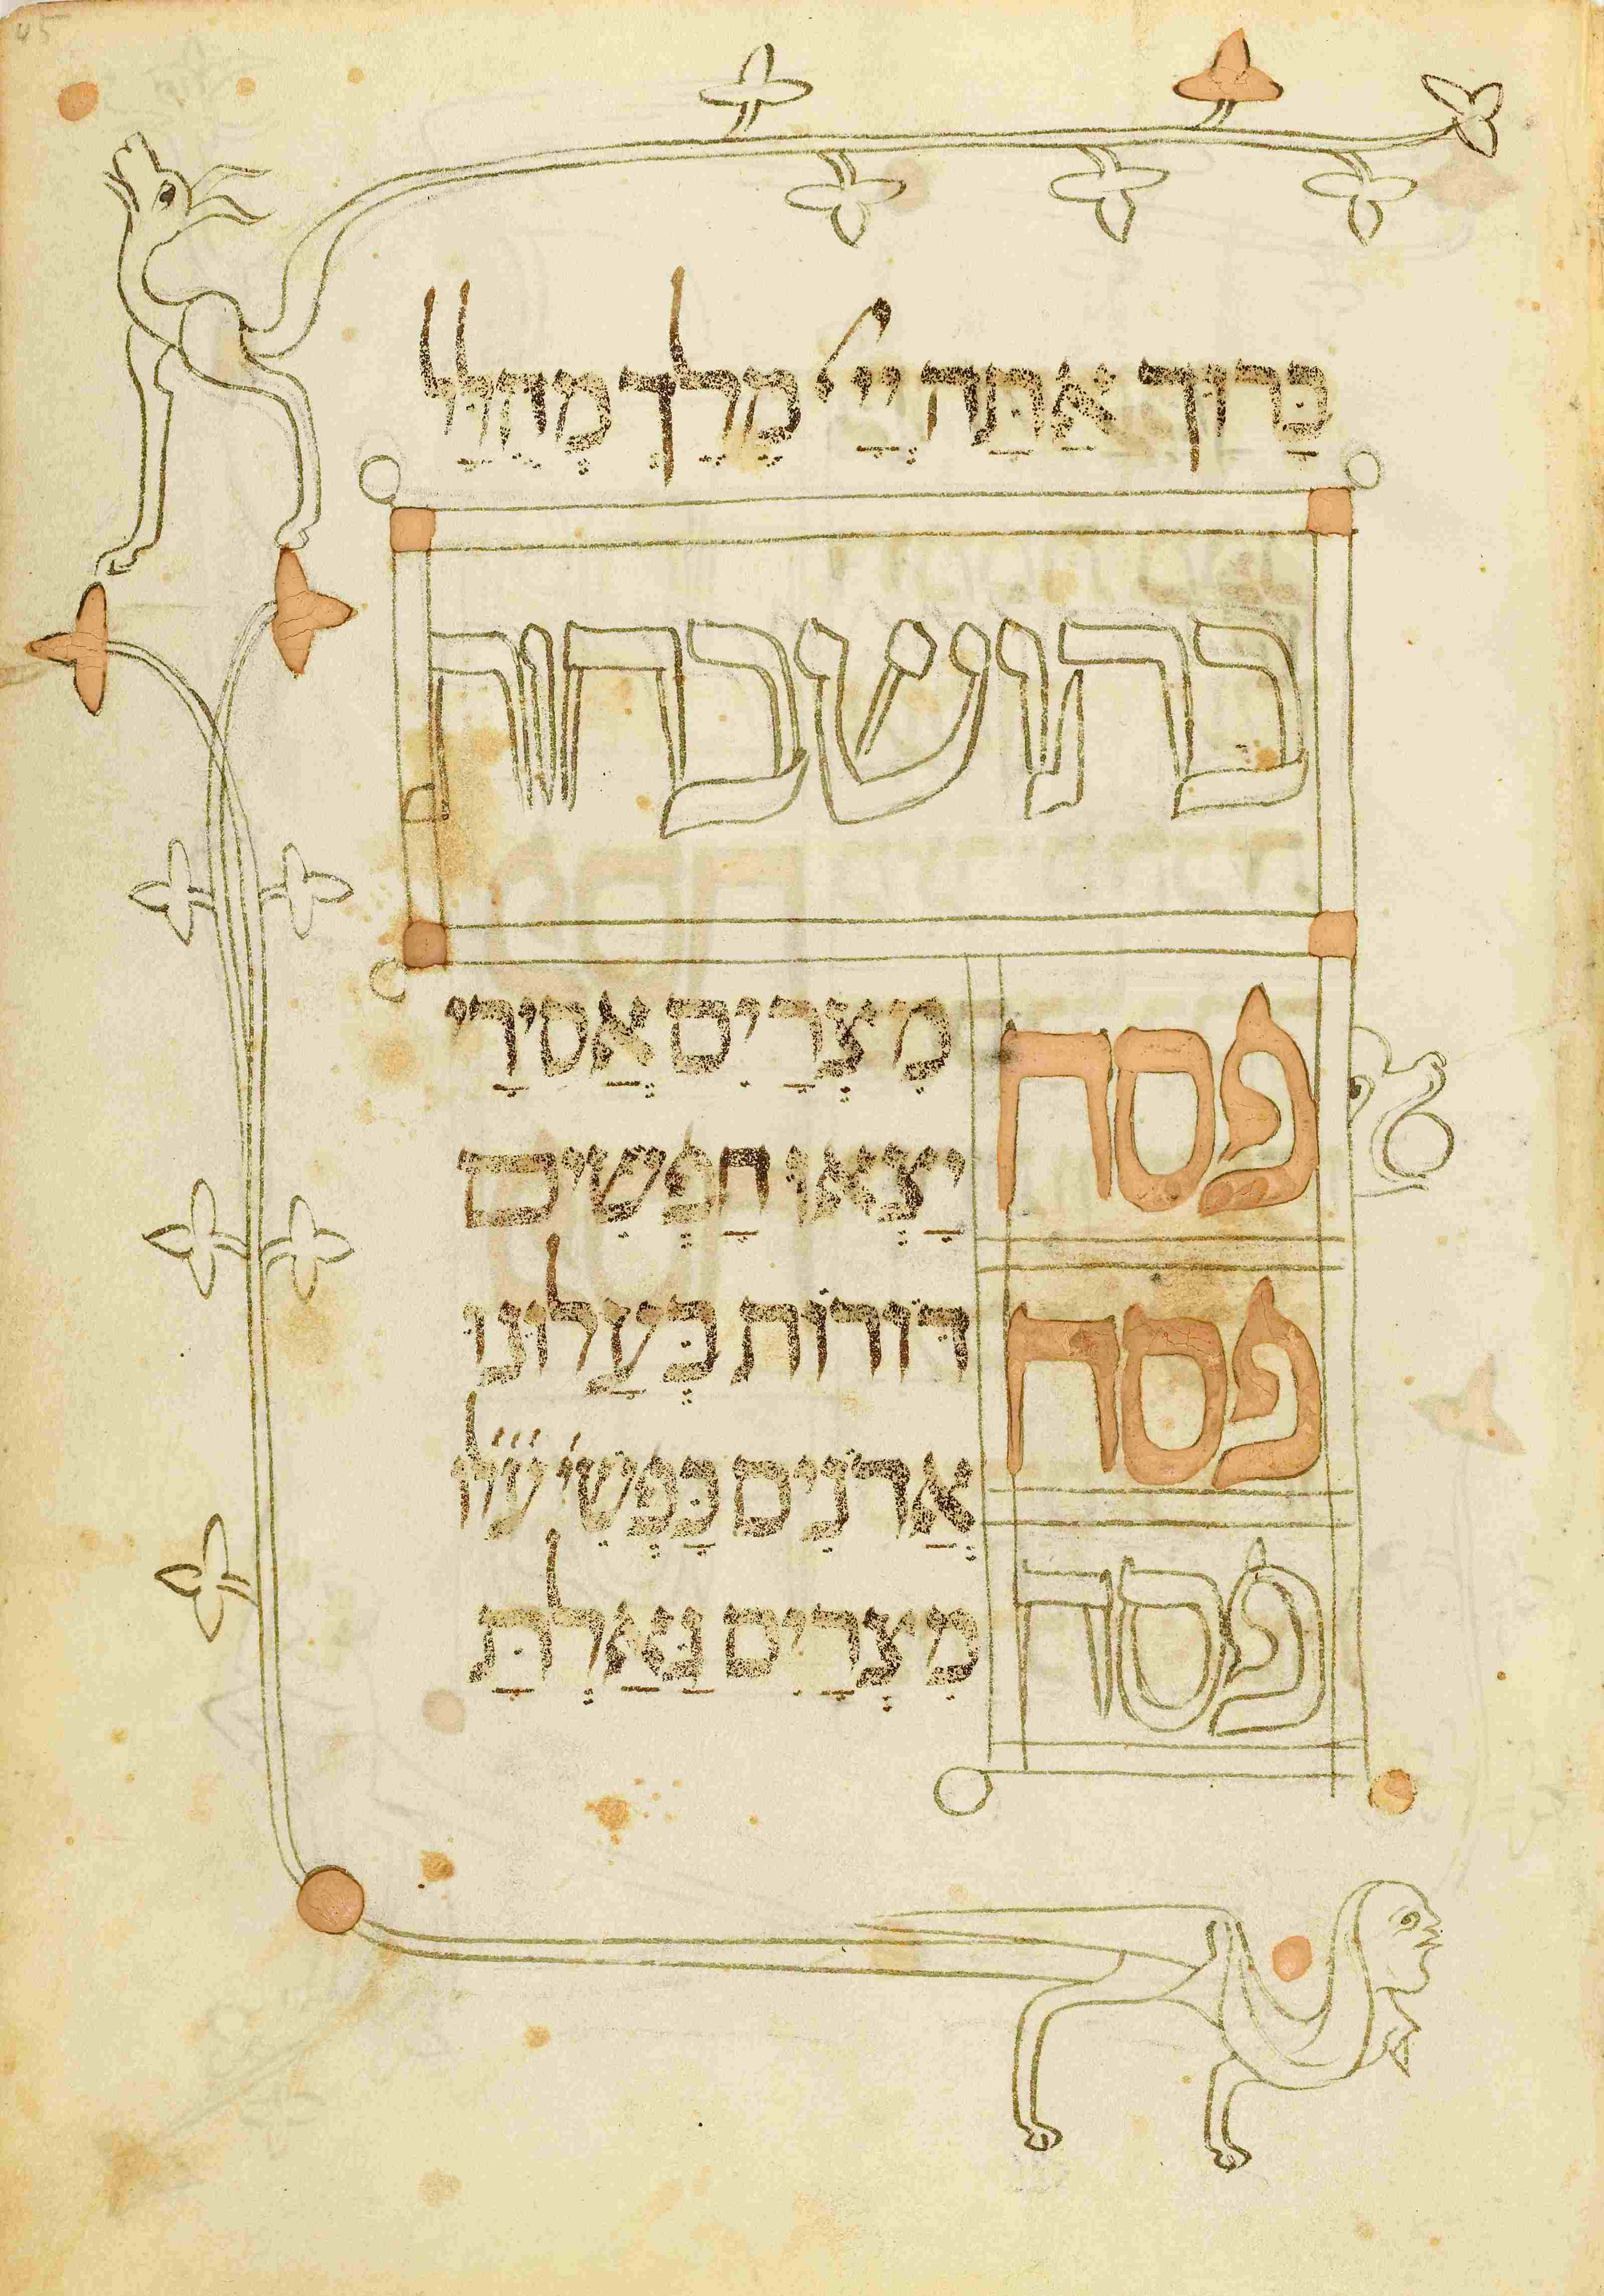 45
ברוך אתה ייי מלך מהלל
בתושבחות
פסח מצרים אסירי
יצאו חפשים
פסח דורות בעלונו
אדנים כפשי
פסח מצרים גאלת